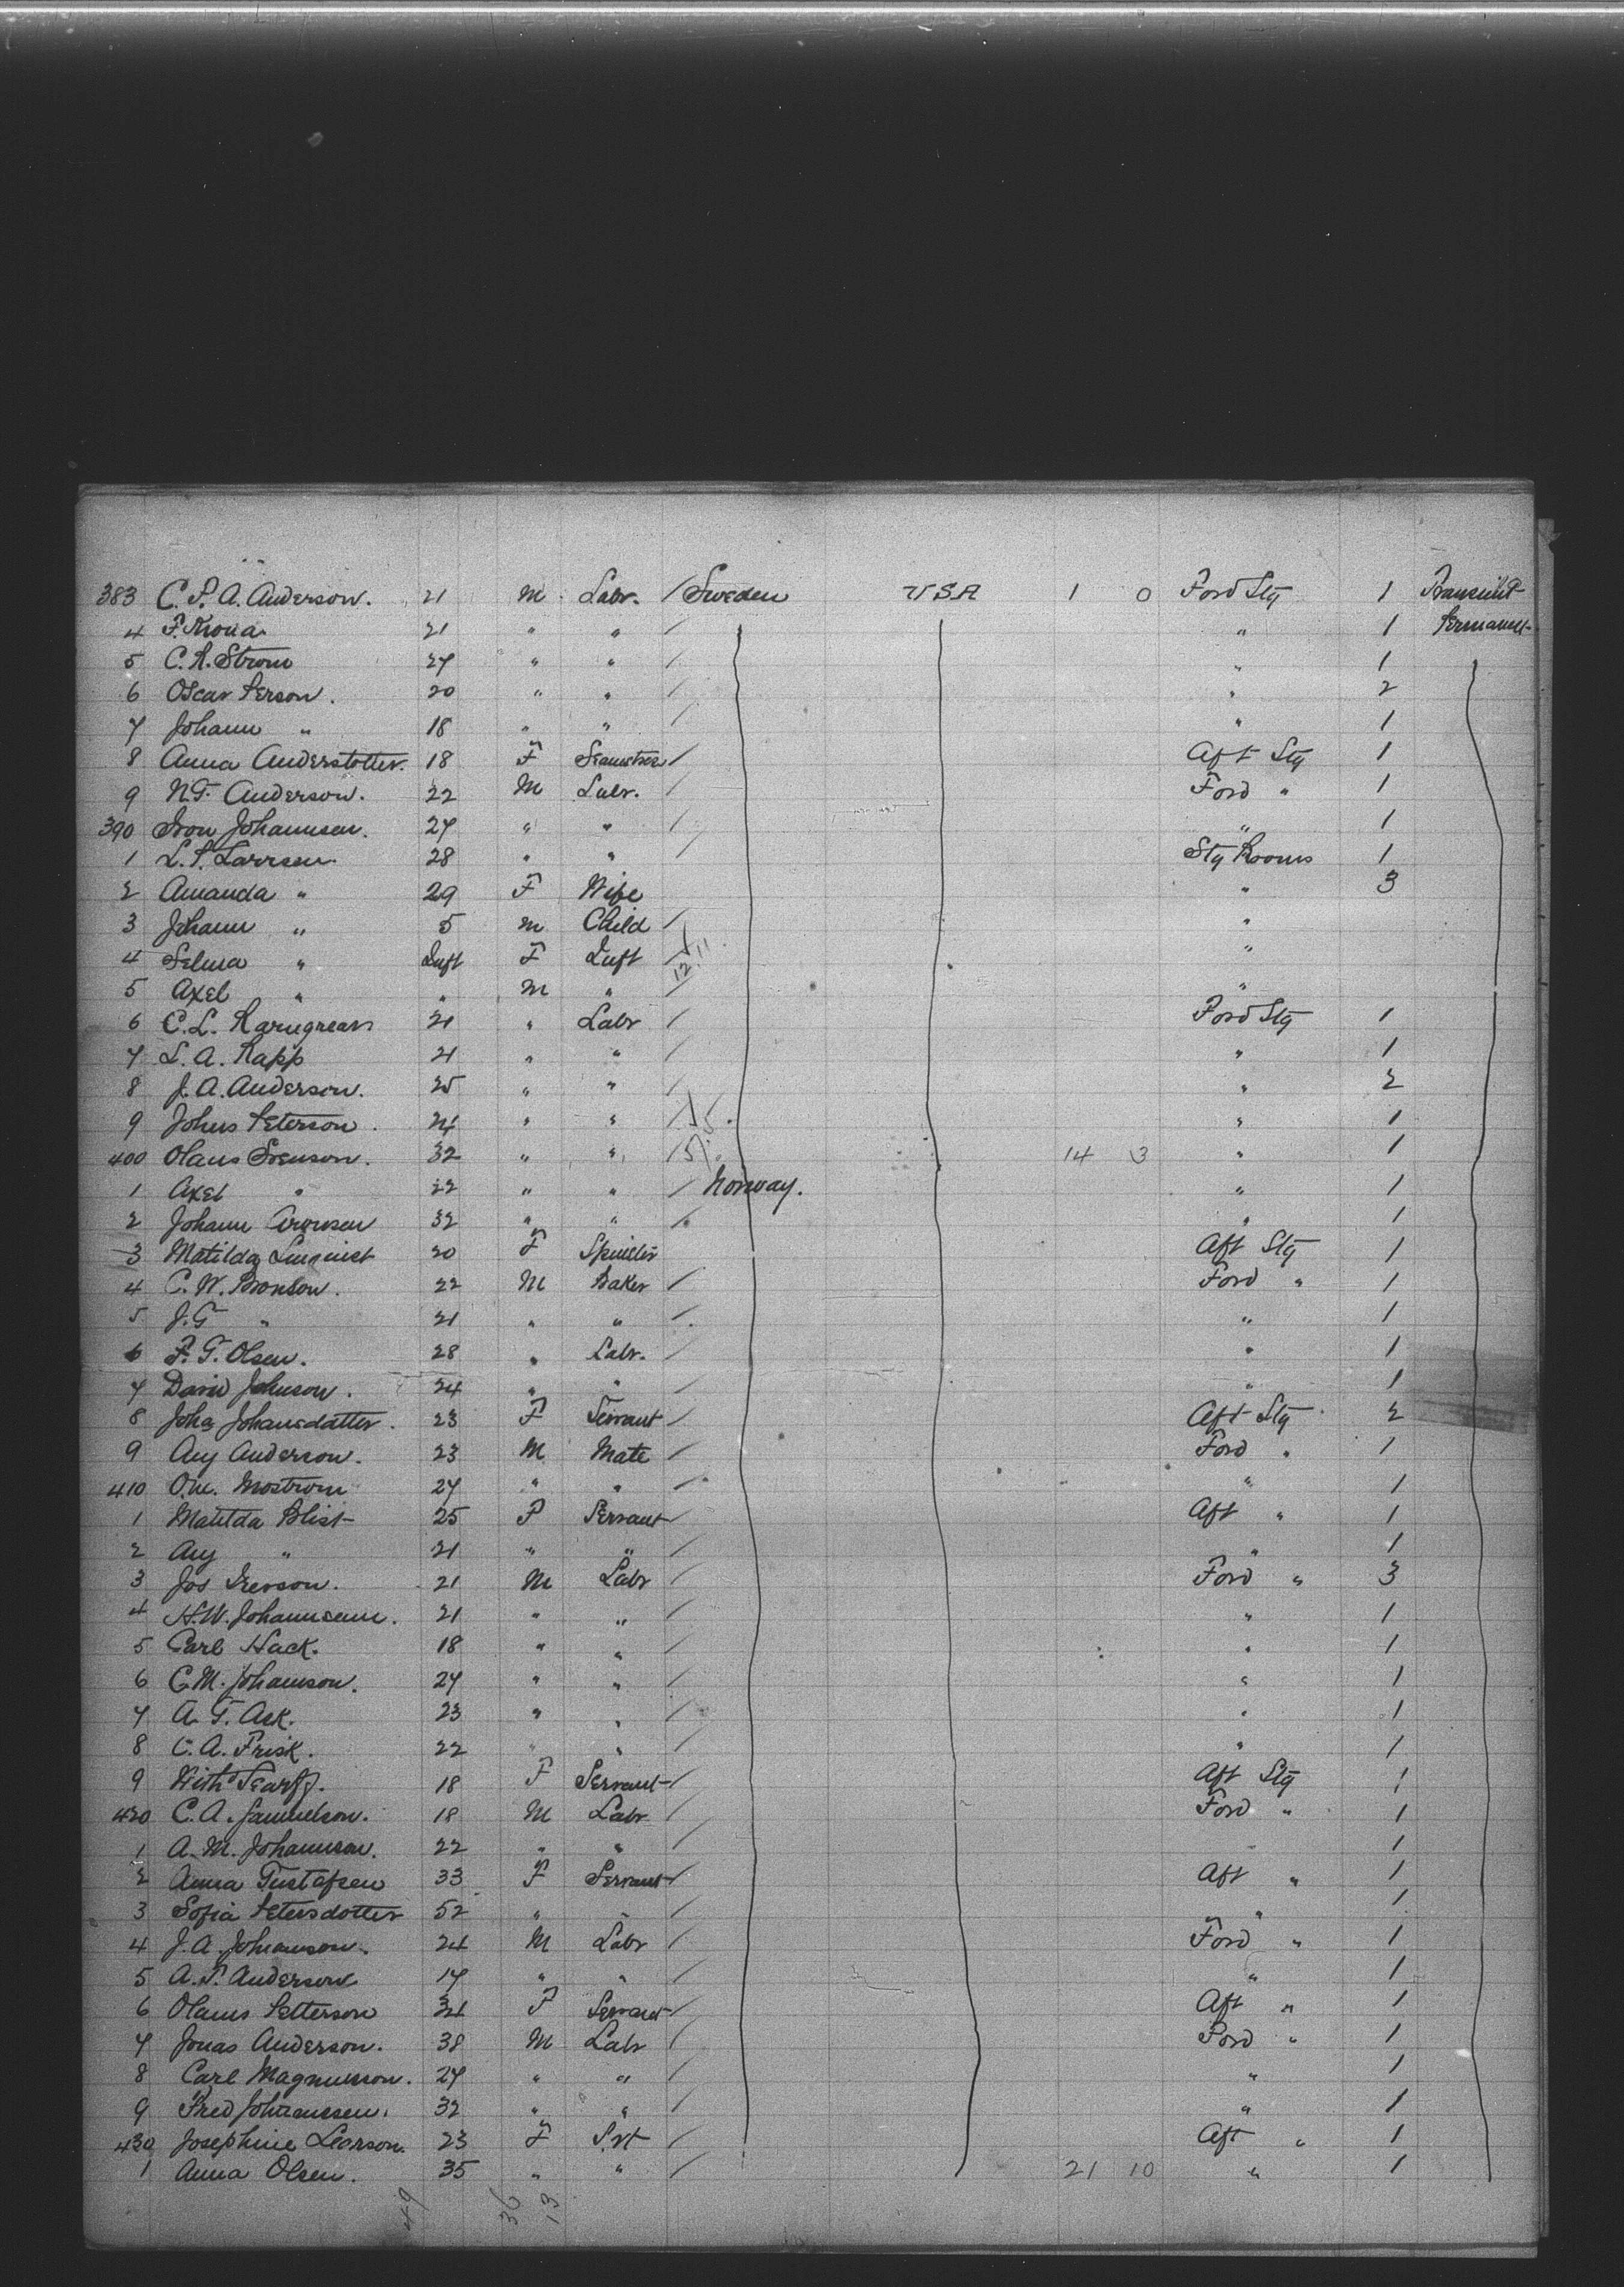 383 C. P. A. Anderson. 21 M Labr. / Sweden USA 1 0 Ford Stg 1
4 F. Krona 21 " " / " 1 Permanent
5 C. A. Strom 27 " " / " 1
6 Oscar Person. 20 " " / " 2
7 Johann " 18 " " / " 1
8 Anna Anderstotter. 18 F Seamstress / Aft Stg 1
9 N.F. Anderson. 22 M Labr. / Ford " 1
390 Johannsen. 27 " " / " 1
1 L. P. Larrsen. 28 " " / Stg Rooms 1
2 Amanda " 29 F Wife " 3
3 Johann " 5 M Child / "
4 Selma " Inft F Inft / 12 11 "
5 Axel " " M " / "
6 C. L. 21 " Labr / Ford Stg 1
7 L. A. Rapp 21 " " / " 1
8 J. A. Anderson. 25 " " / " 2
9 Johns Peterson. 24 " " / " 1
400 Olaus Svenson. 32 " " / 14 3 " 1
1 Axel " 22 " " / Norway. " 1
2 Johann Aronsen 32 " " / " 1
3 Matilda Linquist 20 F Spinster Aft Stg 1
4 C. W. Bronson. 22 M Baker / Ford " 1
5 J. G " 21 " " / " 1
6 F. G. Olsen. 28 " Labr. " 1
7 David Johnson. 24 " " / " 1
8 Joha Johansdatter. 23 F Servant / Aft Stg 2
9 Aug Anderson. 23 M Mate / Ford " 1
410 O.M. Mostrom 27 " " / " 1
1 Matilda Blist 25 F Servant / Aft " 1
2 Aug " 21 " " / " 1
3 Jos 21 M Labr / Ford " 3
4 H. W. Johannsenn. 21 " " / " 1
5 Carl Hack. 18 " " / " 1
6 C. M. Johanson. 27 " " / " 1
7 A. G. Ack. 23 " " / " 1
8 C. A. Frisk. 22 " " / " 1
9 18 F Servant / Aft Stg 1
420 C. A. Samuelson. 18 M Labr / Ford " 1
1 A. M. Johannson. 22 " " / 1
2 Anna Gustafsen 33 F Servant / Aft " 1
3 Sofia Petersdotter 52 " " / " 1
4 J. A. Johanson. 24 M Labr / Ford " 1
5 A. P. Anderson 17 " " / " 1
6 Olaus Petterson 21 F Servant / Aft " 1
7 Jonas Anderson. 38 M Labr / Ford " 1
8 Carl Magnusson. 27 " " / " 1
9 Fred Johanssen. 32 " " / " 1
430 Josephine Learson. 23 F Svt / Aft " 1
1 Anna Olsen. 35 " " / 21 10 " 1
49 36 13